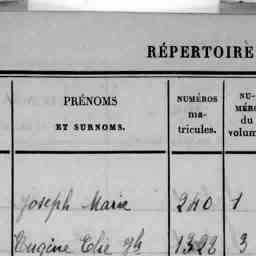 RÉPERTOIRE
PRÉNOMS
ET SURNOMS.
NUMÉROS
ma-
tricules.
NU-
MÉRO
du
volum
Joseph Marie 240 1
Eugène Elie 1328 3